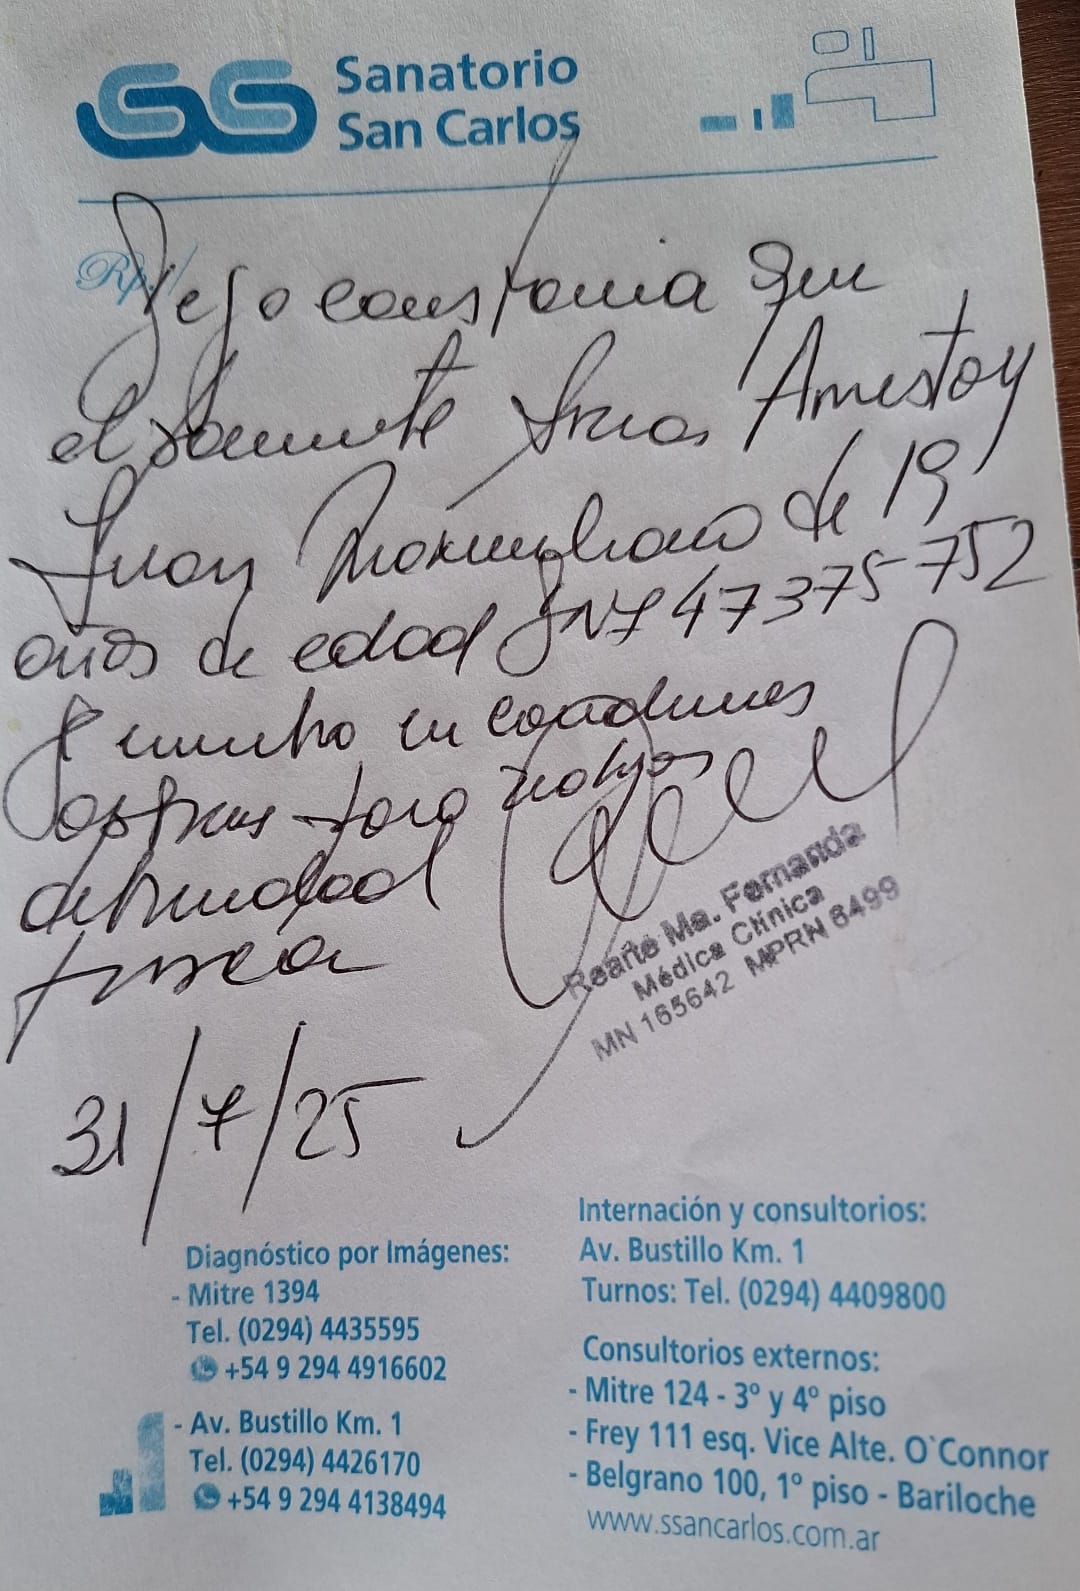 Sanatorio
San Carlos
Rp./
Dejo constancia que
el paciente Frias Amestoy
Juan Maximiliano de 19
años de edad DNI 47375752
se encuentra en condiciones
optimas para realizar
actividad
fisica
31/7/25
Reañe Ma. Fernanda
Médica Clínica
MN 165642 MPRN 8499
Diagnóstico por Imágenes:
- Mitre 1394
Tel. (0294) 4435595
+54 9 294 4916602
- Av. Bustillo Km. 1
Tel. (0294) 4426170
+54 9 294 4138494
Internación y consultorios:
Av. Bustillo Km. 1
Turnos: Tel. (0294) 4409800
Consultorios externos:
- Mitre 124 - 3º y 4º piso
- Frey 111 esq. Vice Alte. O`Connor
- Belgrano 100, 1º piso - Bariloche
www.ssancarlos.com.ar